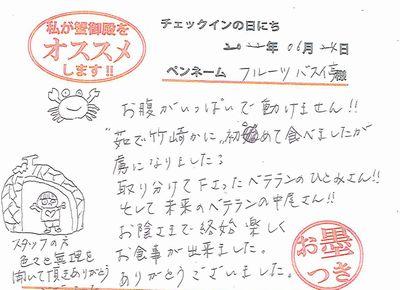 私が蟹御殿を
オススメ
します!!
チェックインの日にち
2022年06月26日
ペンネーム フルーツバス停様
お腹がいっぱいで動けません!!
"茹で竹崎かに"初めて食べましたが
虜になりました♪
取り分けて下さったベテランのひとみさん!!
そして未来のベテランの中尾さん!!
お陰さまで終始楽しく
お食事が出来ました。
ありがとうございました。
スタッフの方
色々と無理を
聞いて頂きありがとう
お墨
つき